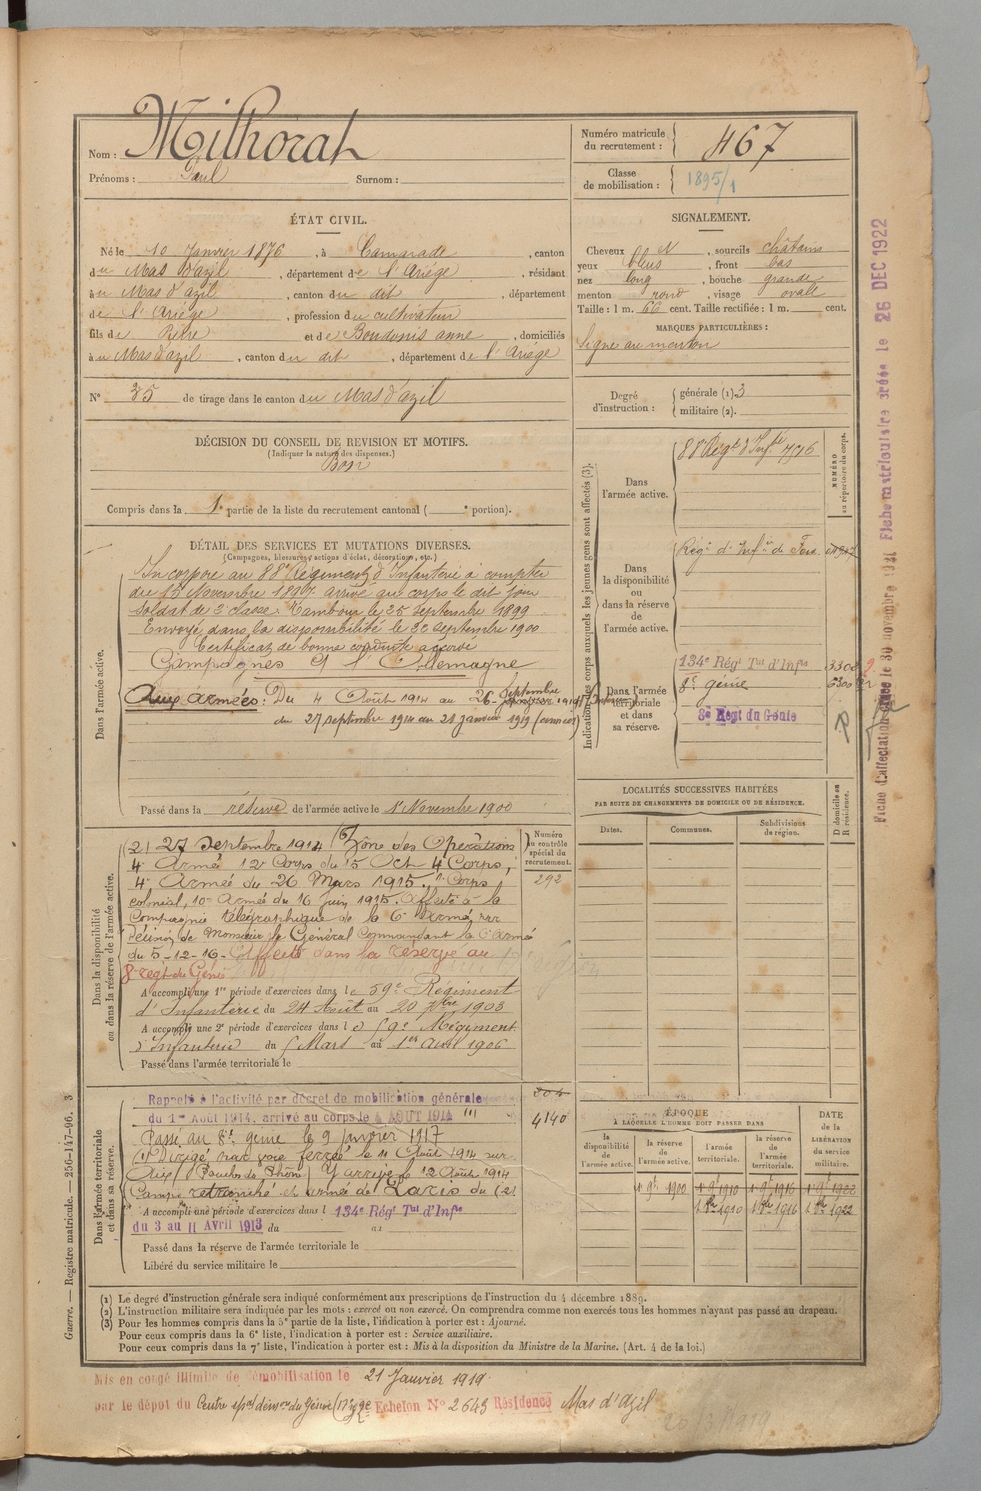 Nom : Milhorat
Prénoms : Paul Surnom :
Numéro matricule du recrutement : 467
Classe de mobilisation : 1895/1
ÉTAT CIVIL.
Né le 10 Janvier 1876, à Camarade, canton
du Mas d'azil, département de l'Ariège, résidant
à u Mas d'azil, canton du dit, département
de l'Ariège, profession de cultivateur
fils de Pierre et de Boudonis anne, domiciliés
à u Mas d'azil, canton du dit, département de l'Ariège
N° 35 de tirage dans le canton du Mas d'azil
SIGNALEMENT.
Cheveux N, sourcils châtains
yeux bleus, front bas
nez long, bouche grande
menton rond, visage ovale
Taille : 1 m. 66 cent. Taille rectifiée : 1 m. cent.
MARQUES PARTICULIÈRES :
Signe au menton
Degré d'instruction : générale (1) 3
militaire (2).
DÉCISION DU CONSEIL DE REVISION ET MOTIFS.
(Indiquer la nature des dispenses.)
Bon
Compris dans la 1e partie de la liste du recrutement cantonal ( e portion).
DÉTAIL DES SERVICES ET MUTATIONS DIVERSES.
(Campagnes, blessures, actions d'éclat, décorations, etc.)
Dans l'armée active.
Incorporé au 88e Régiment d'Infanterie à compter
du 15 Novembre 1897 arrivé au corps le dit jour
soldat de 2e classe. Tambour le 25 septembre 1899
Envoyé dans la disponibilité le 22 septembre 1900
Certificat de bonne conduite accordé
Campagnes Ct l'Allemagne
Aux armées : Du 4 Août 1914 au 26 Septembre 1914
du 27 septembre 1914 au 21 janvier 1919
Passé dans la réserve de l'armée active le 1er Novembre 1900
Dans la disponibilité ou dans la réserve de l'armée active.
(2) 27 Septembre 1914 (6) Zône des Opérations
4e Armée 12e Corps du 15 Oct 4 Corps,
4e Armée du 26 Mars 1915, 1er Corps
colonial, 10e Armée du 16 juin 1915. Affecté à la
Compagnie télégraphique de la 6e Armée, sur
décision de Monsieur le Général Commandant la 6e Armée
du 5-12-16- Affecté dans la réserve au
8e régt du Génie
A accompli une 1re période d'exercices dans le 59e Régiment
d'Infanterie du 24 Août au 20 7bre 1903
A accompli une 2e période d'exercices dans le 59e Régiment
d'Infanterie du 5 Mars au 1er Avril 1906
Passé dans l'armée territoriale le
Numéro au contrôle spécial du recrutement.
292
304
4140
Dans l'armée territoriale et dans sa réserve.
Rappelé à l'activité par décret de mobilisation générale
du 1er Août 1914, arrivé au corps le 4 AOUT 1914
Passé au 8e génie le 9 Janvier 1917
(1) Dirigé par voie ferrée le 11 Août 1914 sur
Aix (Bouches du Rhône) Y arrive le 12 Août 1914
Camp retranché et armée de Paris du (2)
A accompli une période d'exercices dans l 134e Régt Tal d'Infie
du 3 au 11 Avril 1913 du au
Passé dans la réserve de l'armée territoriale le
Libéré du service militaire le
Indication des corps auxquels les jeunes gens sont affectés (3).
NUMÉRO au répertoire du corps.
Dans l'armée active.
88e Régt d'Infie 7776
Dans la disponibilité ou dans la réserve de l'armée active.
Régt d'Infie de Foix
Dans l'armée territoriale et dans sa réserve.
134e Régt Tal d'Infie
8e génie
8e Régt du Génie
LOCALITÉS SUCCESSIVES HABITÉES
PAR SUITE DE CHANGEMENTS DE DOMICILE OU DE RÉSIDENCE.
Dates. Communes. Subdivisions de région. D domicile ou R résidence.
ÉPOQUE À LAQUELLE L'HOMME DOIT PASSER DANS
la disponibilité de l'armée active. la réserve de l'armée active. l'armée territoriale. la réserve de l'armée territoriale.
DATE de la LIBÉRATION du service militaire.
1er 9bre 1900 1er 9bre 1910 1er 9bre 1916 1er 9bre 1922
1 8bre 1910 1 8bre 1916 1 8bre 1922
(1) Le degré d'instruction générale sera indiqué conformément aux prescriptions de l'instruction du 4 décembre 1889.
(2) L'instruction militaire sera indiquée par les mots : exercé ou non exercé. On comprendra comme non exercés tous les hommes n'ayant pas passé au drapeau.
(3) Pour les hommes compris dans la 5e partie de la liste, l'indication à porter est : Ajourné.
Pour ceux compris dans la 6e liste, l'indication à porter est : Service auxiliaire.
Pour ceux compris dans la 7e liste, l'indication à porter est : Mis à la disposition du Ministre de la Marine. (Art. 4 de la loi.)
Mis en congé illimité de démobilisation le 21 Janvier 1919.
par le dépôt du Centre spal démon du Génie Echelon N° 2643 Résidence Mas d'azil
Guerre. — Registre matricule. — 256-147-96. 3
Fiche d'affectation créée le 30 novembre 1921 Fiche matriculaire créée le 26 DEC 1922